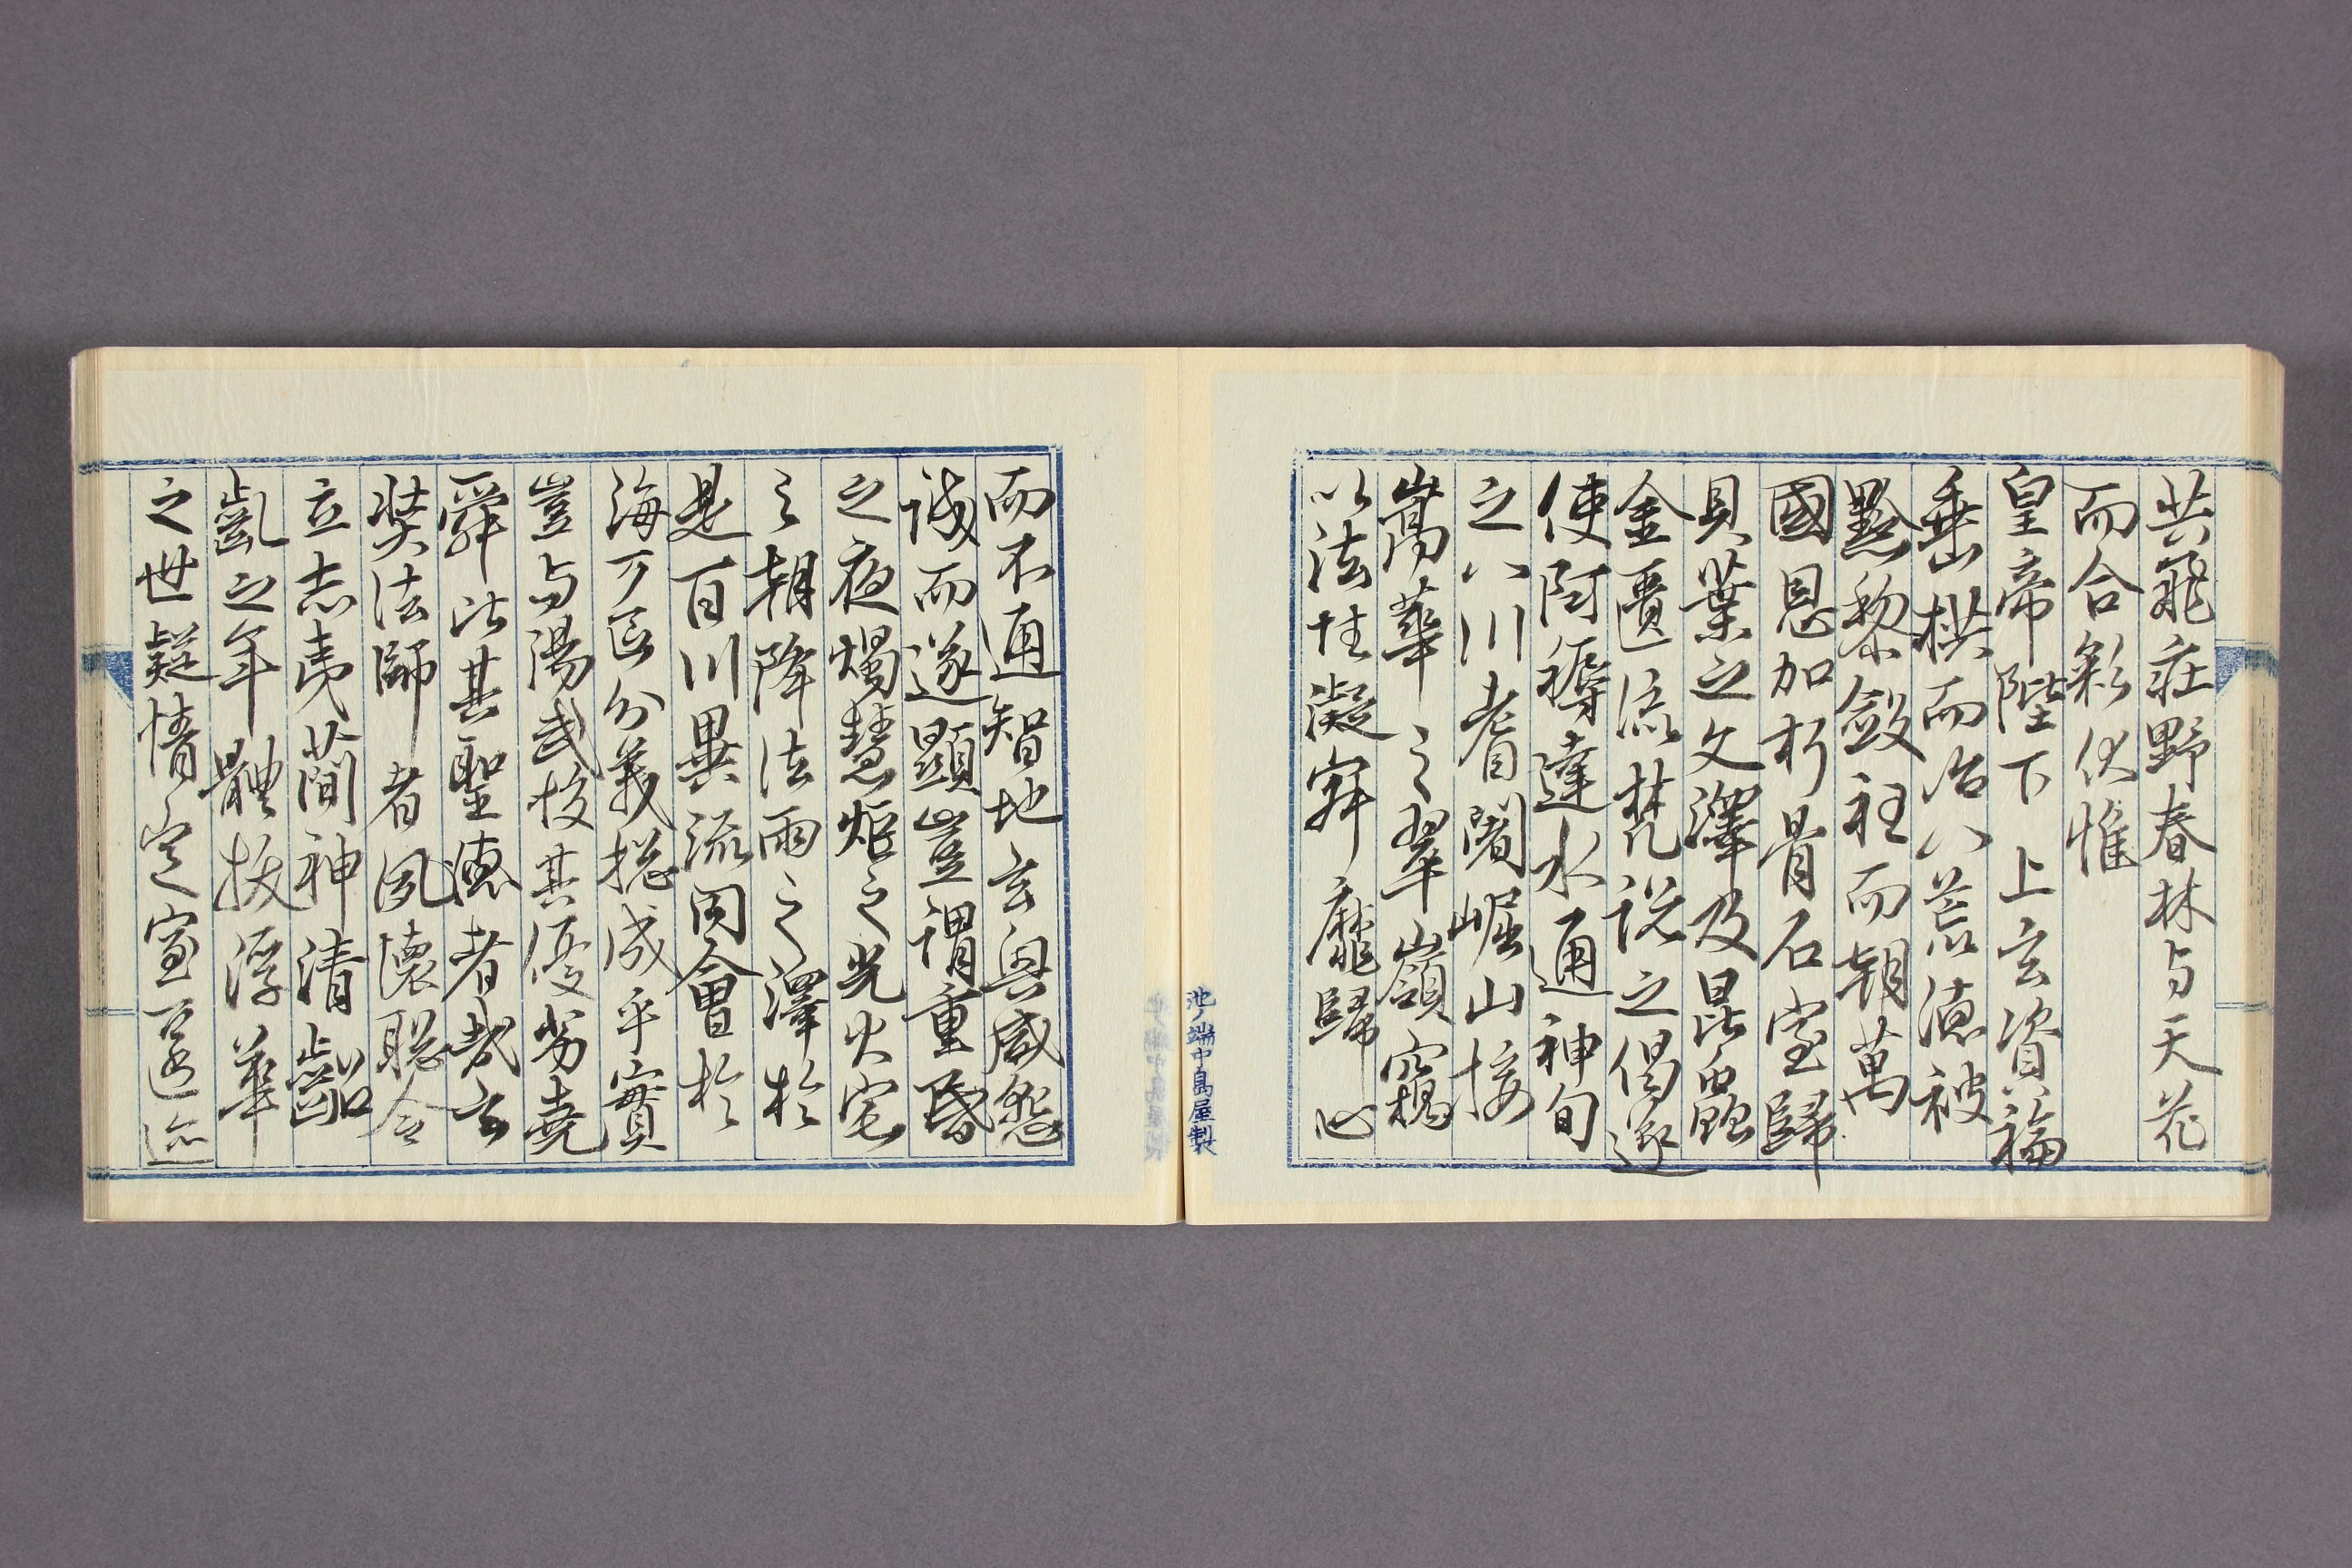 共飛莊野春林与天花
而合彩伏惟
皇帝陛下上玄資福
垂拱而治八荒德被
黔黎斂衽而朝萬
國恩加朽骨石室歸
貝葉之文澤及昆蟲
金匱流梵說之偈遂
使阿耨達水通神甸
之八川耆闍崛山接
嵩華之翠嶺竊
以法性凝寂靡歸心
而不通智地玄奧感懇
誠而遂顯豈謂重昏
之夜燭慧炬之光火宅
之朝降法雨之澤於
是百川異流同會於
海万區分義揔成乎實
豈与湯武挍其優劣堯
舜比其聖德者哉玄
奘法師者夙懷聡令
立志夷簡神清齠
齔之年體拔浮華
之世凝情定室匿迹
池ノ端中島屋製